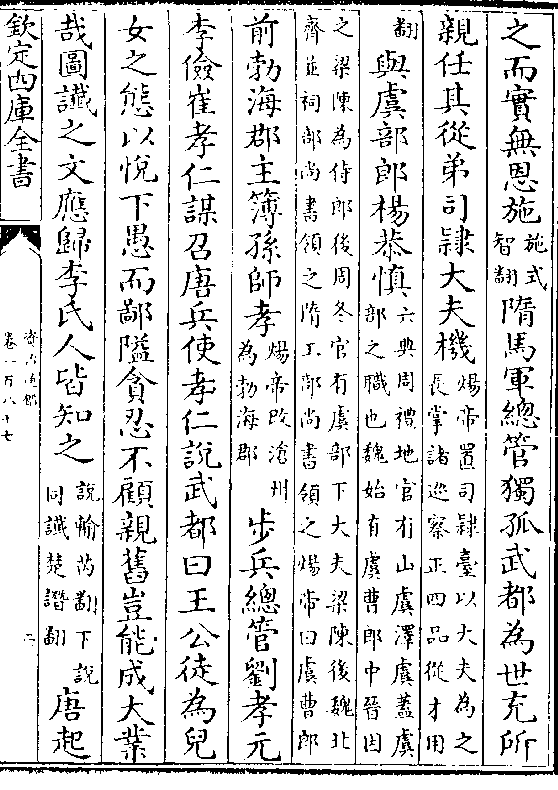 之而實無恩施施式智翻隋馬軍總管獨孤武都為世充所
親任其從弟司隸大夫機煬帝置司隸臺以大夫為之長掌諸巡察正四品從才用
翻與虞部郎楊恭慎六典周禮地官有山虞澤虞蓋虞部之職也魏始有虞曹郎中晉因
之梁陳為侍郎後周冬官有虞部下大夫梁陳後魏北齊並祠部尚書領之隋工部尚書領之煬帝曰虞曹郎
前勃海郡主簿孫師孝煬帝改滄州為勃海郡步兵總管劉孝元
李儉崔孝仁謀召唐兵使孝仁說武都曰王公徒為兒
女之態以悅下愚而鄙隘貪忍不顧親舊豈能成大業
哉圖讖之文應歸李氏人皆知之說輸芮翻下說同讖楚譖翻唐起
欽定四庫全書
資治通鑑
卷一百八十七
二